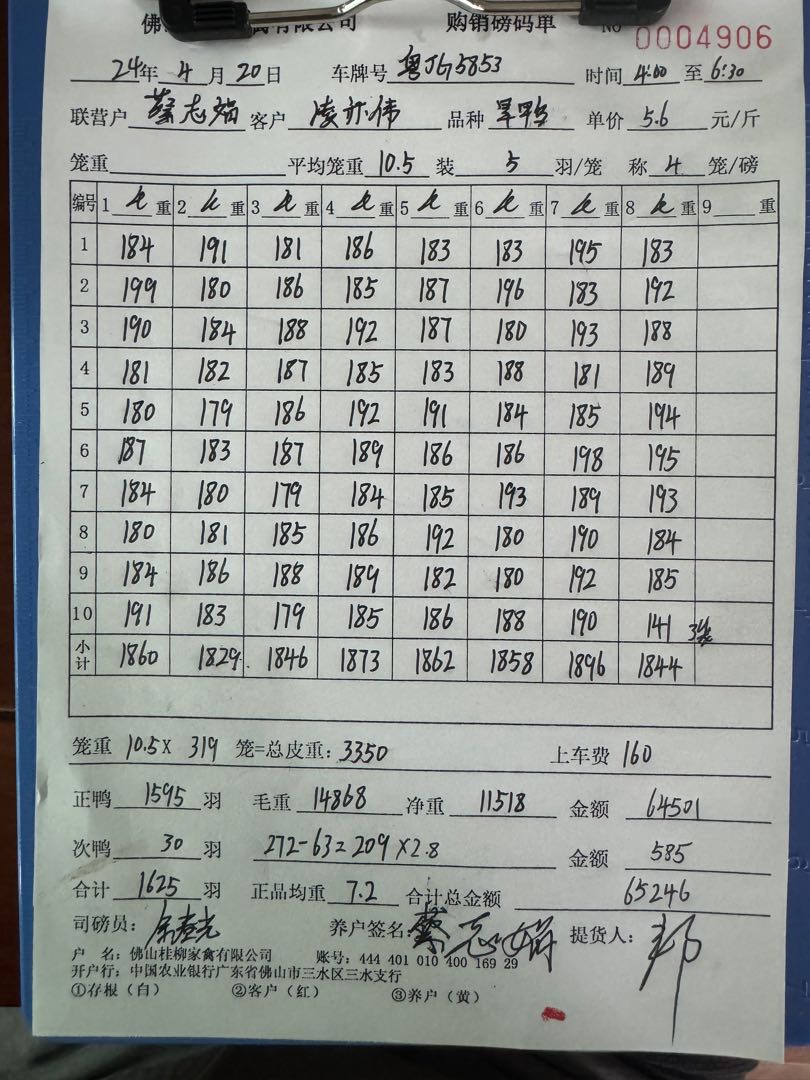 有限公司 购销磅码单 No 0004906
24年 4月 20日 车牌号 粤JG5853 时间 4:00 至 6:30
联营户 蔡志娟 客户 品种 旱鸭 单价 5.6 元/斤
笼重 平均笼重 10.5 装 5 羽/笼 称 4 笼/磅
编号 1 毛重 2 毛重 3 毛重 4 毛重 5 毛重 6 毛重 7 毛重 8 毛重 9 重
1 184 191 181 186 183 183 195 183
2 199 180 186 185 187 196 183 192
3 190 184 188 192 187 180 193 188
4 181 182 187 185 183 188 181 189
5 180 179 186 192 191 184 185 194
6 187 183 187 189 186 186 198 195
7 184 180 179 184 185 193 189 193
8 180 181 185 186 192 180 190 184
9 184 186 188 189 182 180 192 185
10 191 183 179 185 186 188 190 141 3笼
小计 1860 1829 1846 1873 1862 1858 1896 1844
笼重 10.5X 319 笼=总皮重: 3350 上车费 160
正鸭 1595 羽 毛重 14868 净重 11518 金额 64501
次鸭 30 羽 272-63=209X2.8 金额 585
合计 1625 羽 正品均重 7.2 合计总金额 65246
司磅员: 养户签名: 蔡志娟 提货人: 邦
户 名: 佛山桂柳家禽有限公司 账号: 444 401 010 400 169 29
开户行: 中国农业银行广东省佛山市三水区三水支行
①存根（白） ②客户（红） ③养户（黄）